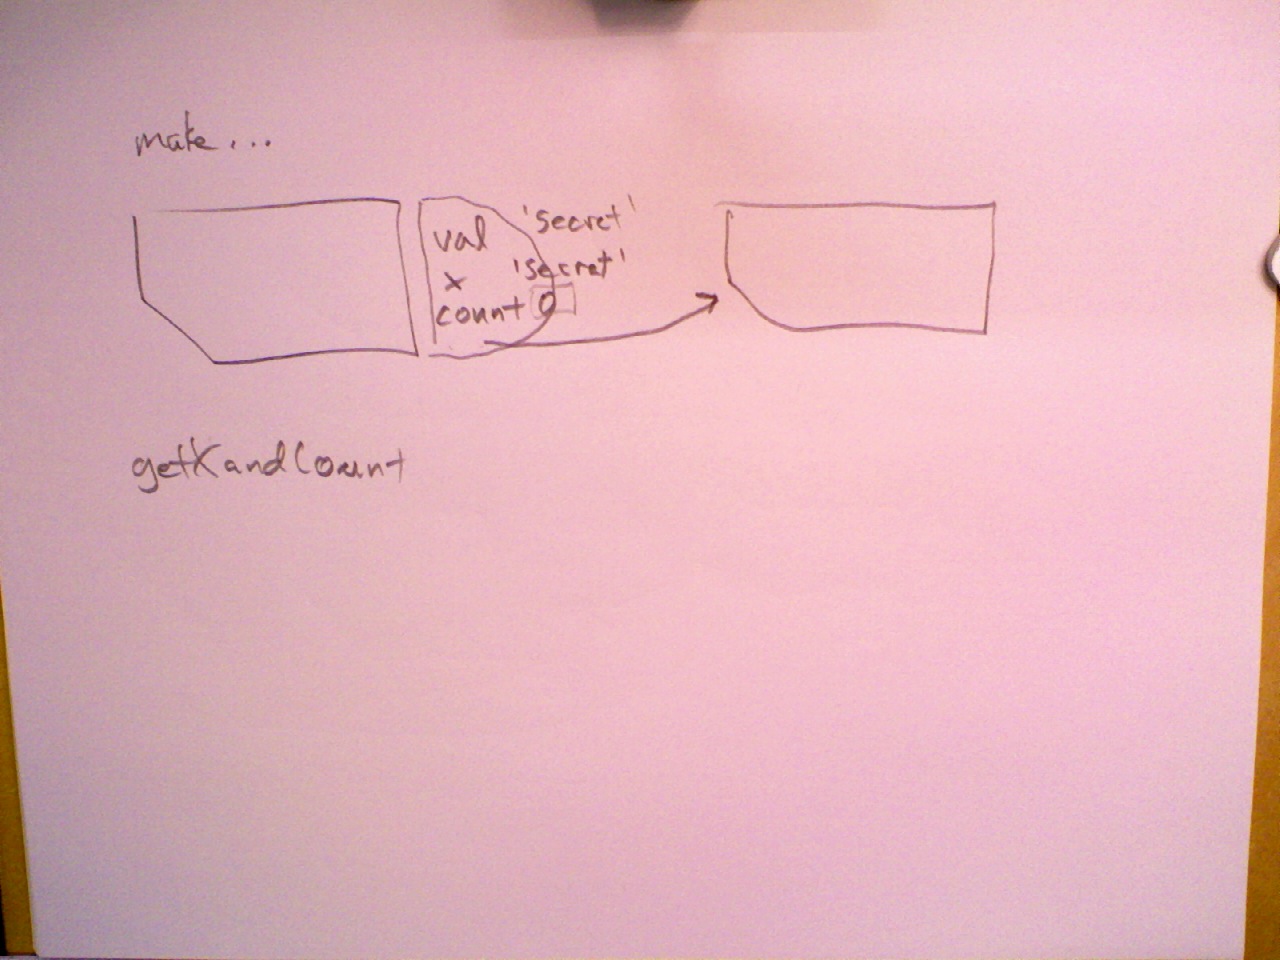 make...
val 'secret'
x 'secret'
count 0
getXandCount